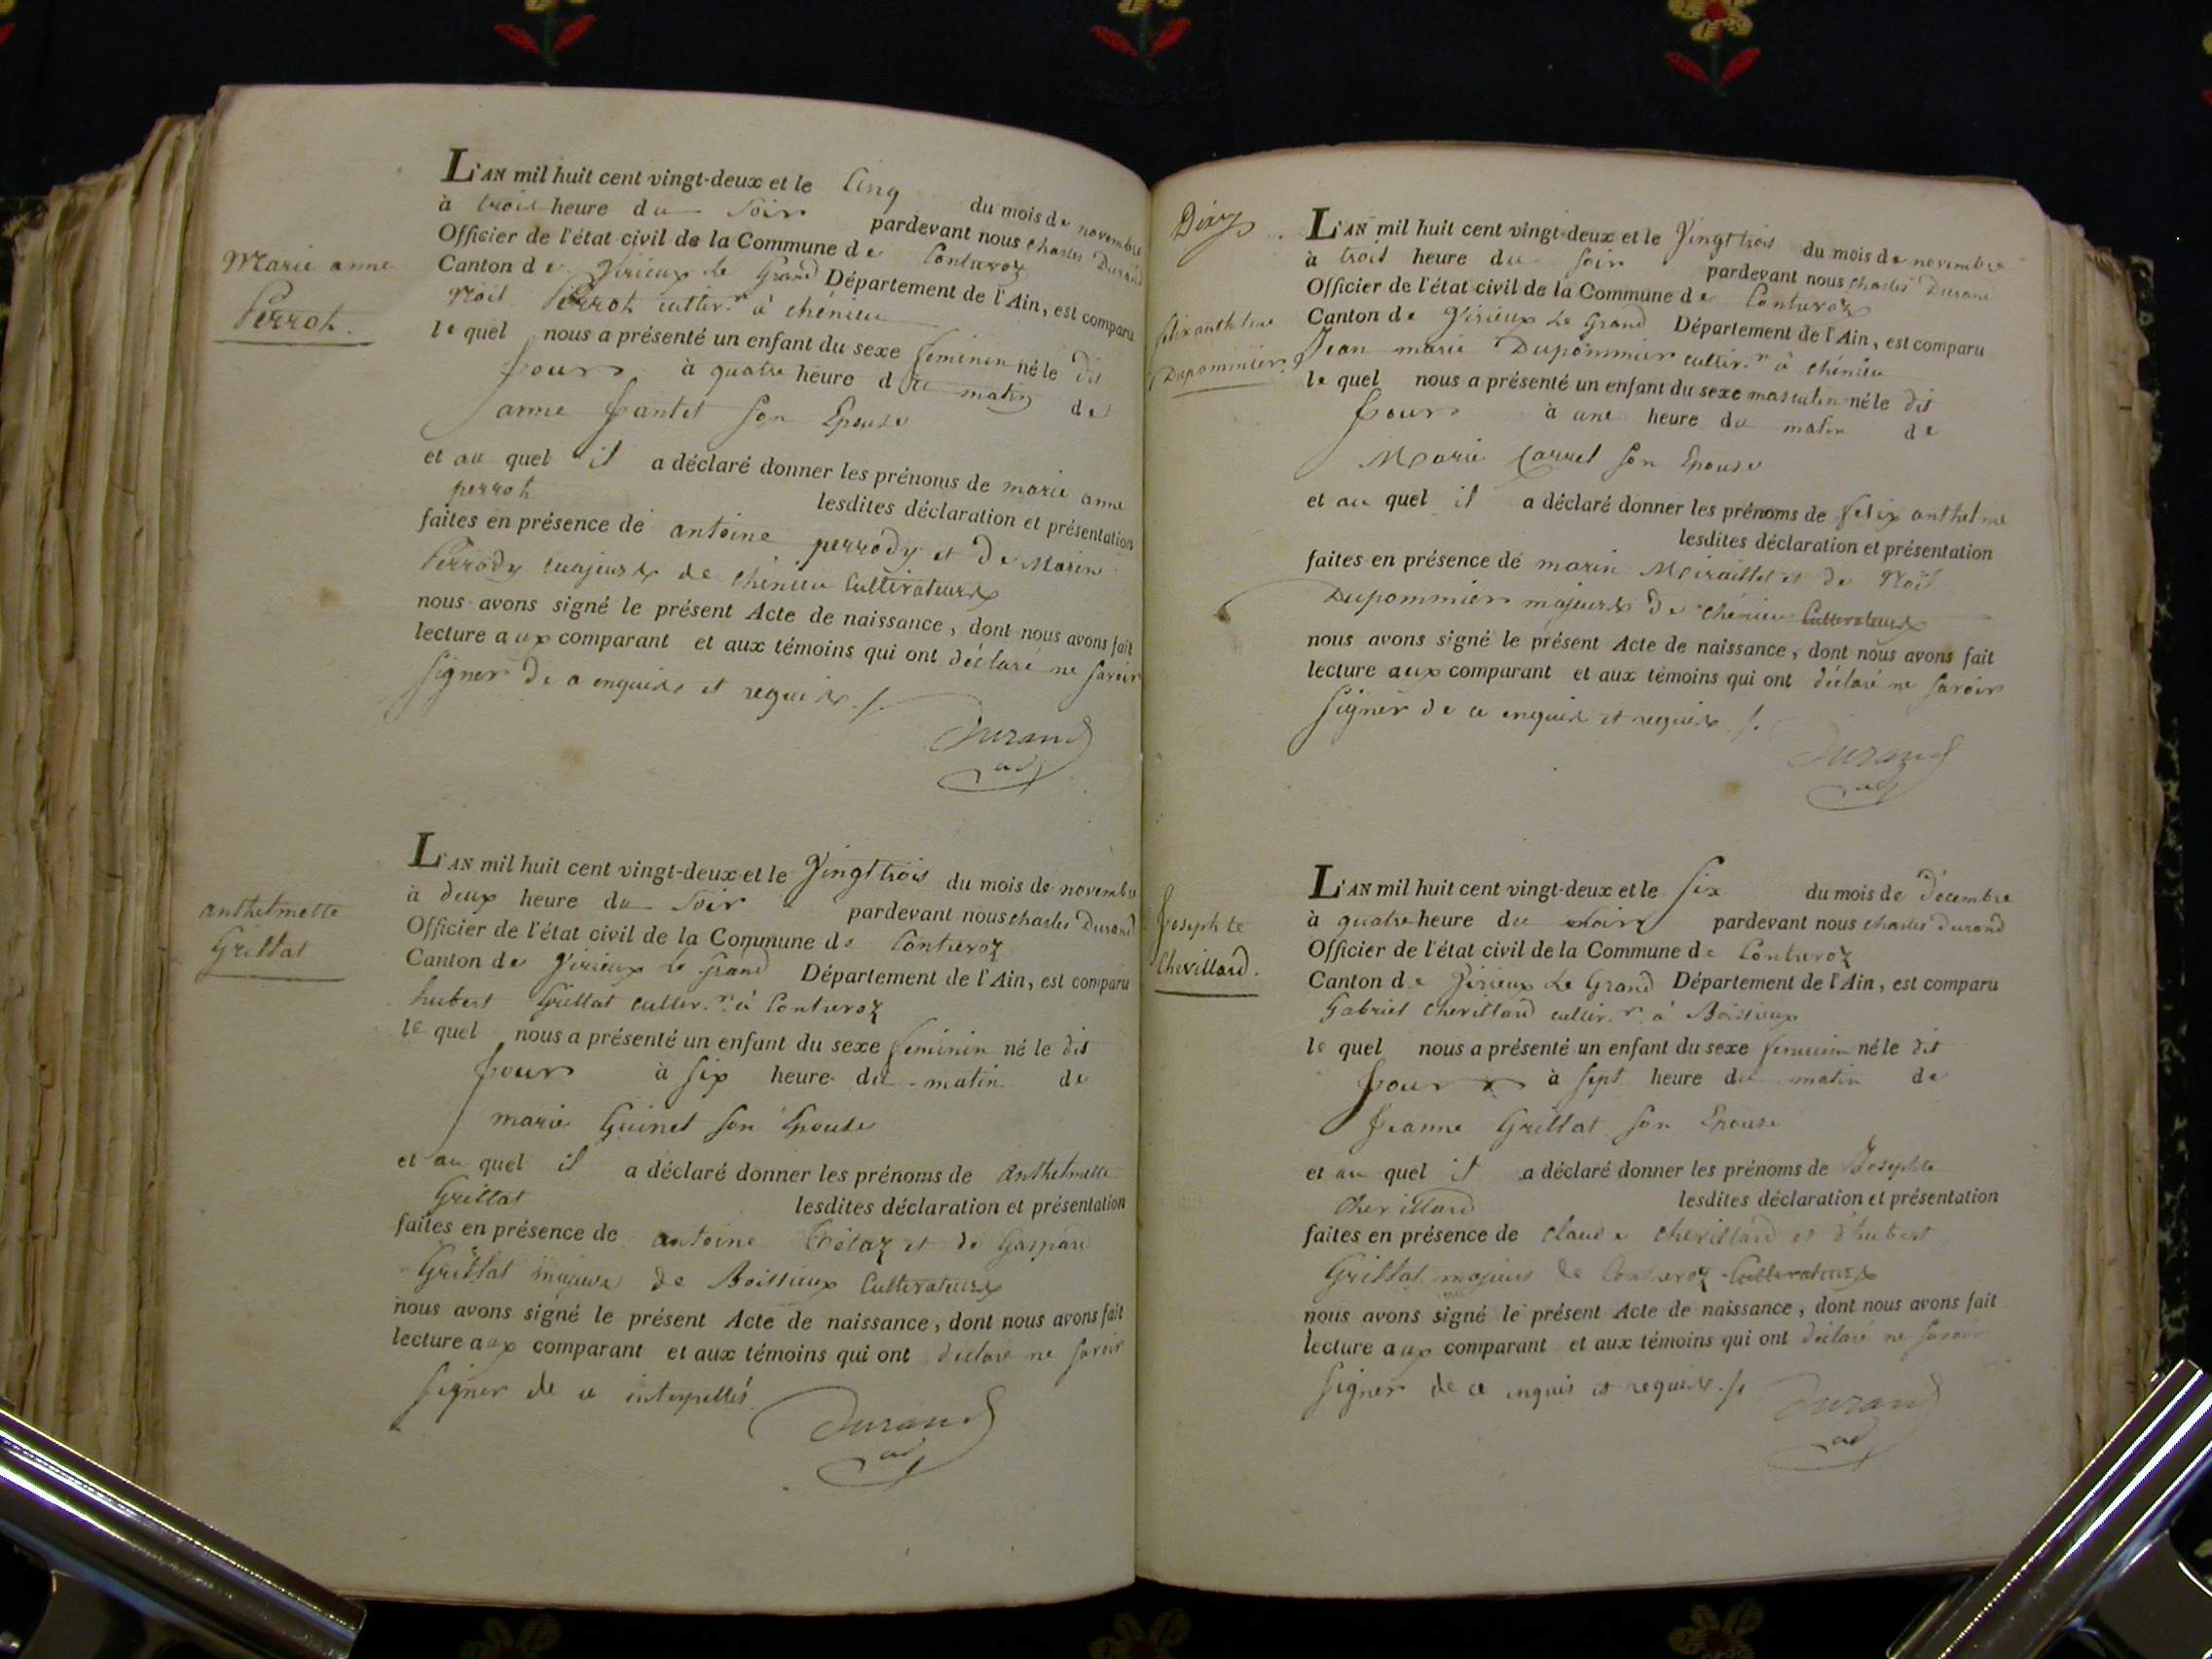 Marie anne
Perrot.
L'AN mil huit cent vingt-deux et le Cinq du mois de novembre
à trois heure du Soir pardevant nous charles Durand
Officier de l'état civil de la Commune de Contrevoz
Canton de Virieux Le Grand Département de l'Ain, est comparu
Noël Perrot cultiv.r à chénieu
le quel nous a présenté un enfant du sexe feminin né le dit
jour à quatre heure du matin de
anne jantet son Epouse
et au quel il a déclaré donner les prénoms de marie anne
perrot lesdites déclaration et présentation
faites en présence de antoine perrody et de Marin
Perrody majeurs de chénieu Cultivateurs
nous avons signé le présent Acte de naissance, dont nous avons fait
lecture aux comparant et aux témoins qui ont déclaré ne savoir
signer de ce enquis et requis ./.
Durand
adj
anthelmette
Grillat
L'AN mil huit cent vingt-deux et le Vingt trois du mois de novembre
à deux heure du Soir pardevant nous charles Durand
Officier de l'état civil de la Commune de Contrevoz
Canton de Virieux Le Grand Département de l'Ain, est comparu
hubert Grillat cultiv.r à Contrevoz
le quel nous a présenté un enfant du sexe feminin né le dit
jour à six heure du matin de
marie Guinet son Epouse
et au quel il a déclaré donner les prénoms de anthelmette
Grillat lesdites déclaration et présentation
faites en présence de antoine et de Gaspard
Grillat majeurs de Boissieux Cultivateurs
nous avons signé le présent Acte de naissance, dont nous avons fait
lecture aux comparant et aux témoins qui ont déclaré ne savoir
signer de ce interpellés.
Durand
adj
felix anthelme
Dupommier
L'AN mil huit cent vingt-deux et le Vingt trois du mois de novembre
à trois heure du soir pardevant nous charles Durand
Officier de l'état civil de la Commune de Contrevoz
Canton de Virieux Le Grand Département de l'Ain, est comparu
Jean marie Dupommier cultiv.r à chénieu
le quel nous a présenté un enfant du sexe masculin né le dit
jour à une heure du matin de
Marie Carrel son Epouse
et au quel il a déclaré donner les prénoms de felix anthelme
lesdites déclaration et présentation
faites en présence de marin Miraillet et de Noël
Dupommier majeurs de chénieu Cultivateurs
nous avons signé le présent Acte de naissance, dont nous avons fait
lecture aux comparant et aux témoins qui ont déclaré ne savoir
signer de ce enquis et requis ./.
Durand
adj
Josephte
Chevillard.
L'AN mil huit cent vingt-deux et le six du mois de décembre
à quatre heure du soir pardevant nous charles Durand
Officier de l'état civil de la Commune de Contrevoz
Canton de Virieux Le Grand Département de l'Ain, est comparu
Gabriel Chevillard cultiv.r à Boissieux
le quel nous a présenté un enfant du sexe feminin né le dit
jour à sept heure du matin de
Jeanne Grillat son Epouse
et au quel il a déclaré donner les prénoms de Josephte
Chevillard lesdites déclaration et présentation
faites en présence de claude chevillard et d'hubert
Grillat majeurs de Contrevoz Cultivateurs
nous avons signé le présent Acte de naissance, dont nous avons fait
lecture aux comparant et aux témoins qui ont déclaré ne savoir
signer de ce enquis et requis ./.
Durand
adj